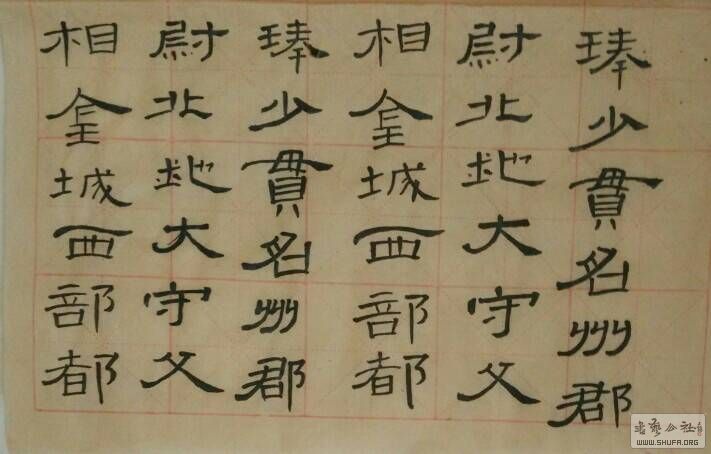 琫少貫名州郡
尉北地大守父
相金城西部都
琫少貫名州郡
尉北地大守父
相金城西部都
书艺公社
WWW.SHUFA.ORG